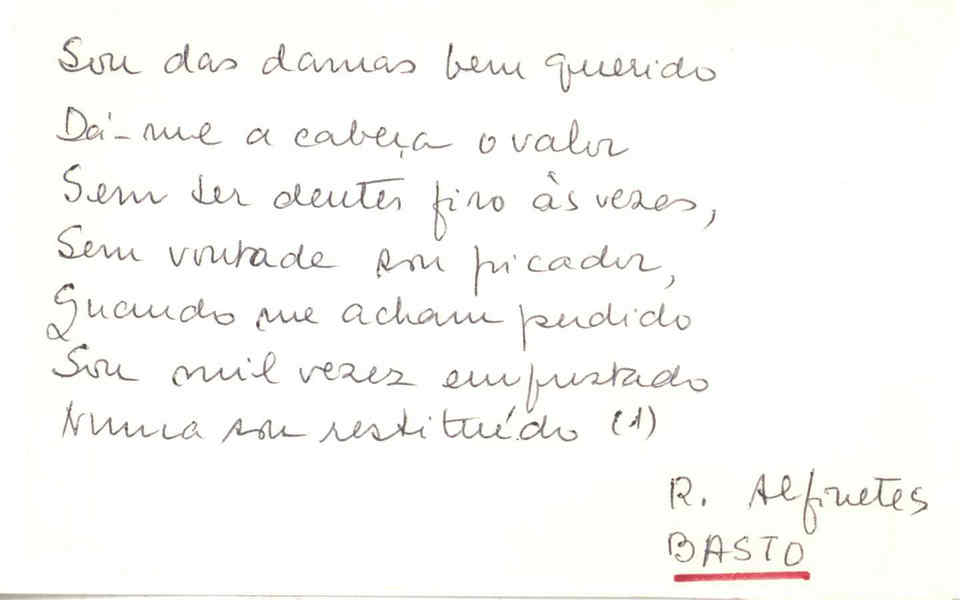 Sou das damas bem querido
Dá-me a cabeça o valor
Sem ter dentes firo às vezes,
Sem vontade sou picador,
Quando me acham perdido
Sou mil vezes emprestado
Nunca sou restituído (1)
R. Alfinetes
BASTO